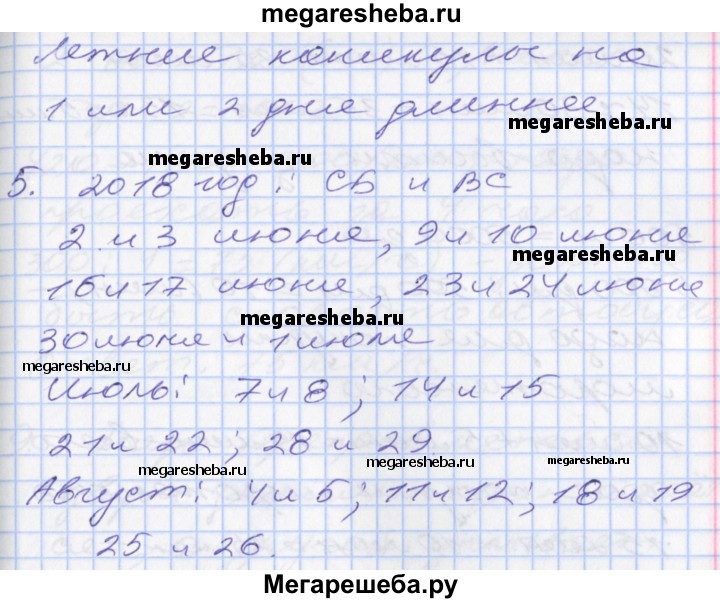 megaresheba.ru
Летние каникулы на
1 или 2 дня длиннее
megaresheba.ru
megaresheba.ru
5. 2018 год: СБ и ВС
2 и 3 июня, 9 и 10 июня
megaresheba.ru
16 и 17 июня, 23 и 24 июня
megaresheba.ru
30 июня и 1 июля
megaresheba.ru
Июль: 7 и 8; 14 и 15
21 и 22; 28 и 29
megaresheba.ru
megaresheba.ru
megaresheba.ru
Август: 4 и 5; 11 и 12; 18 и 19
25 и 26.
Мегарешеба.ру